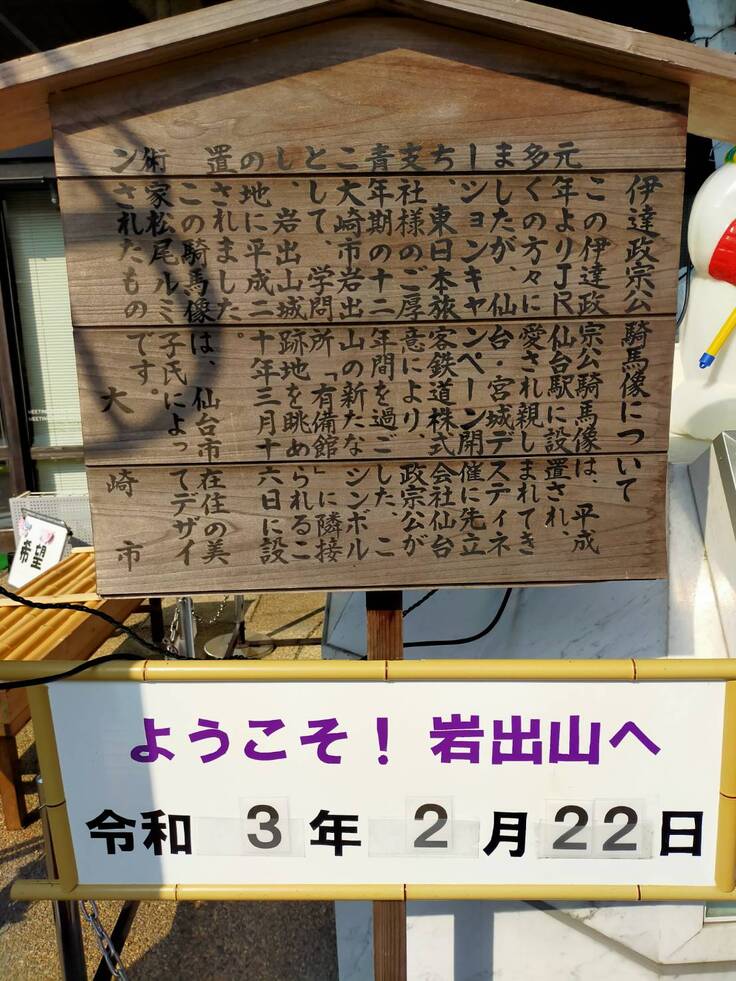 伊達政宗公騎馬像について
この伊達政宗公騎馬像は、平成
元年よりJR仙台駅に設置され、
多くの方々に愛され親しまれてき
ましたが、仙台・宮城デスティネ
ーションキャンペーン開催に先立
ち、東日本旅客鉄道株式会社仙台
支社様のご厚意により、政宗公が
青年期の十二年間を過ごした、こ
こ大崎市岩出山の新たなシンボル
として、学問所「有備館」に隣接
し、岩出山城跡地を眺められるこ
の地に平成二十年三月十六日に設
置されました。
この騎馬像は、仙台市在住の美
術家松尾ルミ子氏によってデザイ
ンされたものです。
大崎市
希望
ようこそ！岩出山へ
令和3年2月22日